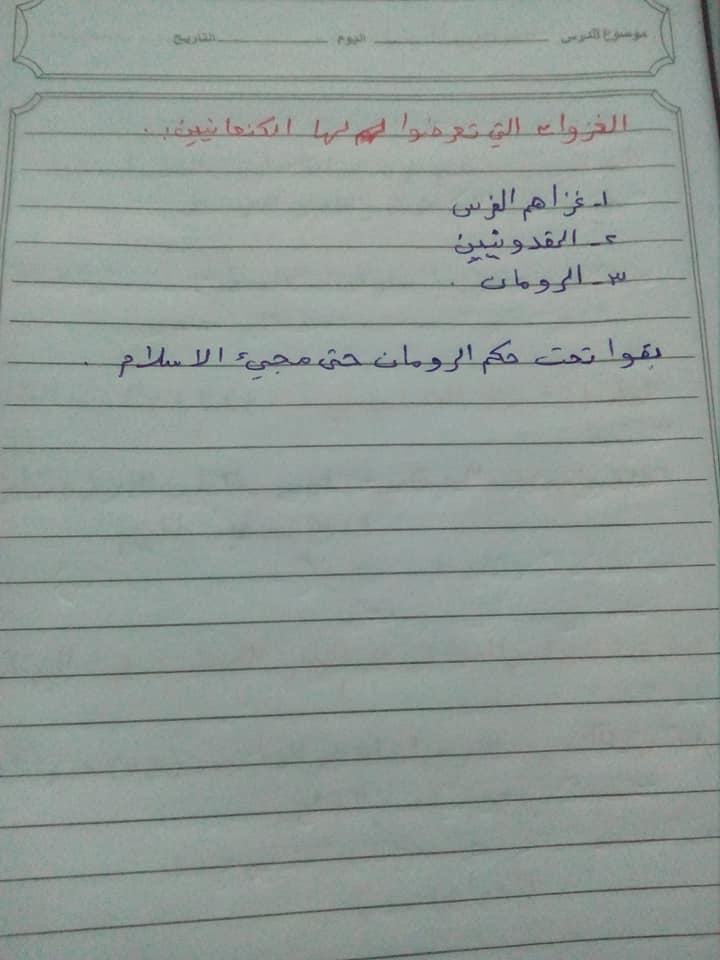 موضوع الدرس ____________ اليوم ____________ التاريخ ____________
الغزوات التي تعرضوا لها الكنعانيين :.
١- غزاهم الفرس
٢- المقدونيين
٣- الرومان .
بقوا تحت حكم الرومان حتى مجيء الاسلام .